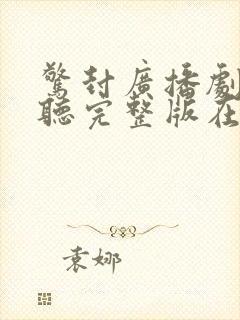 驚封廣播劇
聽完整版在
袁娜